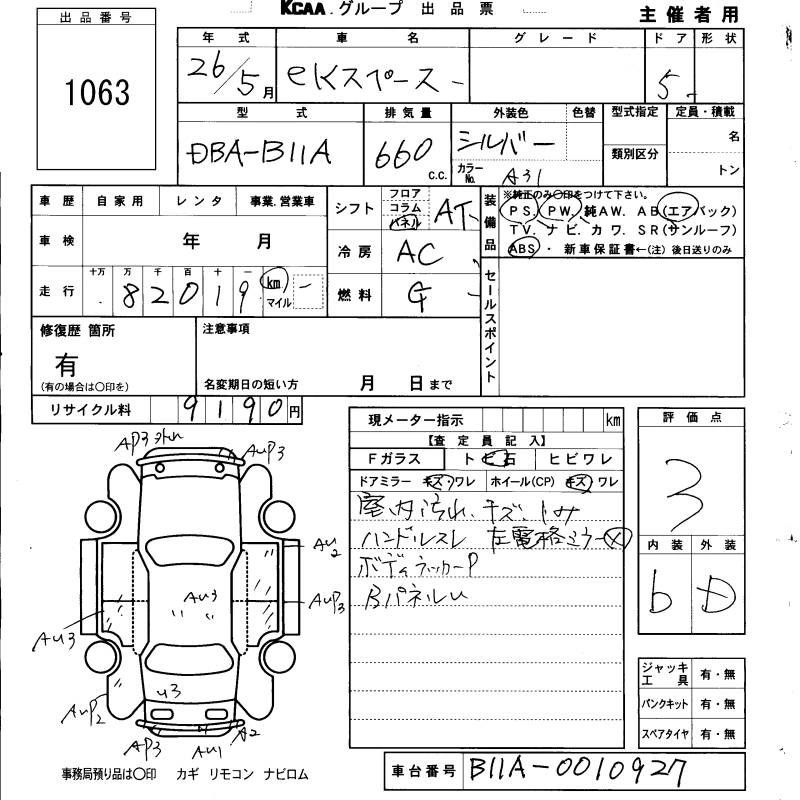 KCAA.グループ 出品票
主催者用
出品番号
1063
年式 車名 グレード ドア 形状
26/5月 eKスペース 5
型式 排気量 外装色 色替 型式指定 定員・積載
DBA-B11A 660 c.c. シルバー 名
カラーNo. A31 類別区分 トン
車歴 自家用 レンタ 事業.営業車
車検 年 月
走行 十万 万 千 百 十 一
82019 km マイル
シフト フロア コラム パネル AT
冷房 AC
燃料 G
装備品 ※純正のみ〇印をつけて下さい。
PS. PW. 純AW. AB(エアバック)
TV. ナビ. カワ. SR(サンルーフ)
ABS ・ 新車保証書←(注) 後日送りのみ
セールスポイント
修復歴 箇所
有
(有の場合は〇印を)
注意事項
名変期日の短い方 月 日まで
リサイクル料 9190円
現メーター指示 km
【査定員記入】
Fガラス トビ石 ヒビワレ
ドアミラー キズ・ワレ ホイール(CP) キズ ワレ
室内汚れ、キズ、シミ
ハンドルスレ 左電格ミラーX
ボディラッカーP
BパネルU
評価点
3
内装 外装
b D
ジャッキ工具 有・無
パンクキット 有・無
スペアタイヤ 有・無
AP3
AUP3
AU2
AU3
AUP3
AU3
U3
AUP2
AP3
AU1
A2
事務局預り品は〇印 カギ リモコン ナビロム
車台番号 B11A-0010927